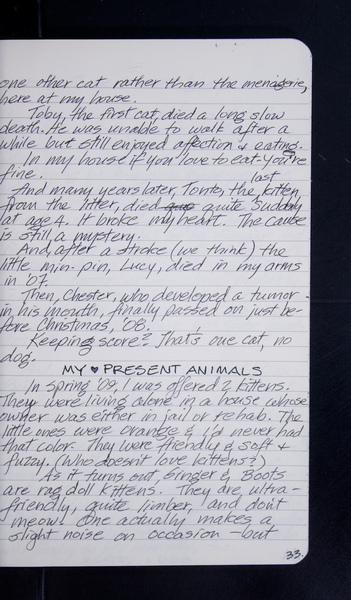 one other cat rather than the menagerie,
here at my house.
Toby, the first cat, died a long slow
death. He was unable to walk after a
while but still enjoyed affection & eating.
In my house if you love to eat-you're
fine.
last
And many years later, Tonto, the kitten
from the litter, died quite suddenly
at age 4. It broke my heart. The cause
is still a mystery.
And, after a stroke (we think) the
little min-pin, Lucy, died in my arms
in '07.
Then, Chester, who developed a tumor
in his mouth, finally passed on just be-
fore Christmas, '08.
Keeping score? That's one cat, no
dog.
MY ♥ PRESENT ANIMALS
In spring '09, I was offered 2 kittens.
They were living alone in a house whose
owner was either in jail or rehab. The
little ones were orange & I'd never had
that color. They were friendly & soft &
fuzzy. (Who doesn't love kittens?)
As it turns out, Ginger & Boots
are rag doll kittens. They are, ultra-
friendly, quite limber, and don't
meow. One actually makes a
slight noise on occasion - but
33.